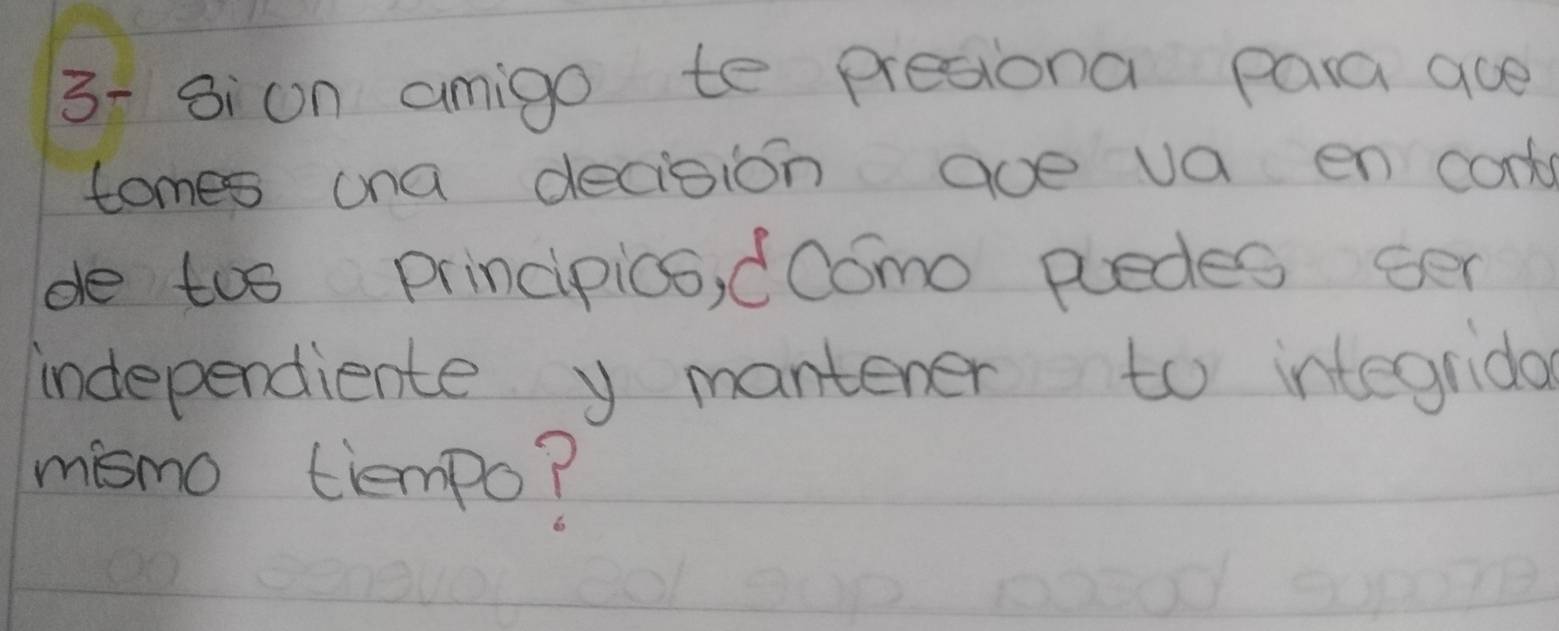 3- Si un amigo te presiona para que
tomes una decisión que va en cont
de tus principios, ¿Cómo puedes ser
independiente y mantener tu integrida
mismo tiempo?